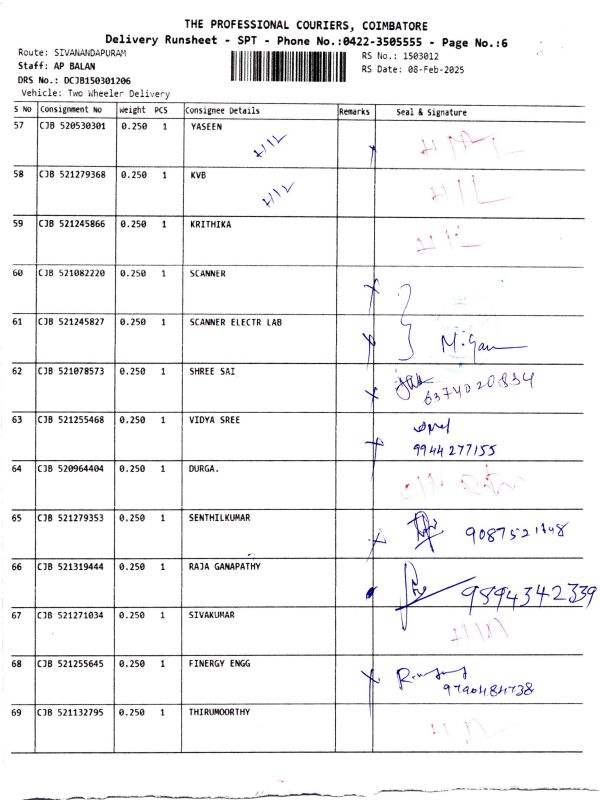 THE PROFESSIONAL COURIERS, COIMBATORE
Delivery Runsheet - SPT - Phone No.:0422-3505555 - Page No.:6
Route: SIVANANDAPURAM
RS No.: 1503012
Staff: AP BALAN
RS Date: 08-Feb-2025
DRS No.: DCJB150301206
Vehicle: Two Wheeler Delivery
S No Consignment No Weight PCS Consignee Details Remarks Seal & Signature
57 CJB 520530301 0.250 1 YASEEN
58 CJB 521279368 0.250 1 KVB
59 CJB 521245866 0.250 1 KRITHIKA
60 CJB 521082220 0.250 1 SCANNER
61 CJB 521245827 0.250 1 SCANNER ELECTR LAB
62 CJB 521078573 0.250 1 SHREE SAI 6374020834
63 CJB 521255468 0.250 1 VIDYA SREE
9944277155
64 CJB 520964404 0.250 1 DURGA.
65 CJB 521279353 0.250 1 SENTHILKUMAR
66 CJB 521319444 0.250 1 RAJA GANAPATHY
9594342339
67 CJB 521271034 0.250 1 SIVAKUMAR
68 CJB 521255645 0.250 1 FINERGY ENGG
9790484738
69 CJB 521132795 0.250 1 THIRUMOORTHY